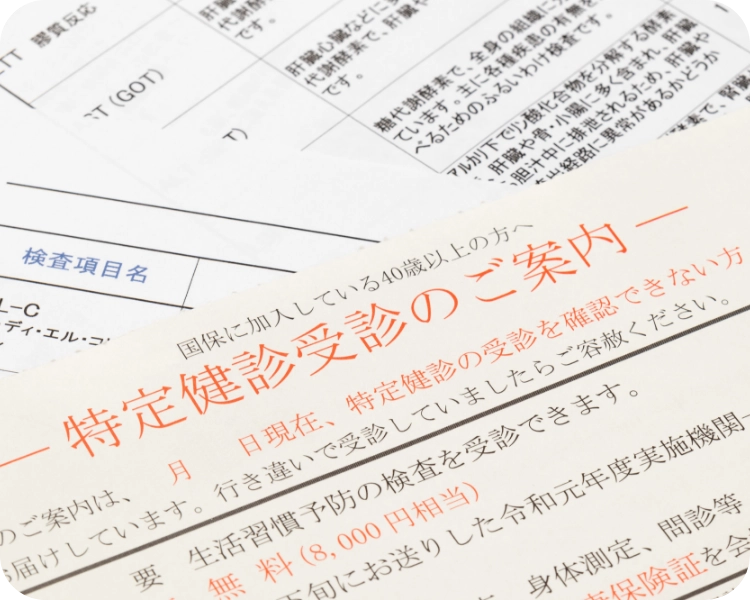 膠質反応
肝臓
代謝酵素
です。
(GOT)
肝臓心臓などに
代謝酵素で、肝臓や
です。
糖代謝酵素で、全身の組織に
ています。主に各種疾患の有無を
べるためのふるいわけ検査です。
アルカリ下でリン酸化合物を分解する酵素
、肝臓や骨・小腸に多く含まれ、肝臓
胆汁中に排泄されるため、肝臓や
出経路に異常があるかどうか
検査項目名
L-C
ディ・エル・コ
国保に加入している40歳以上の方へ
― 特定健診受診のご案内 ―
月 日現在、特定健診の受診を確認できない方
のご案内は、
届けしています。行き違いで受診していましたらご容赦ください。
要 生活習慣予防の検査を受診できます。
無 料 (8,000円相当)
下旬にお送りした令和元年度実施機関
、身体測定、問診等
保険証を会